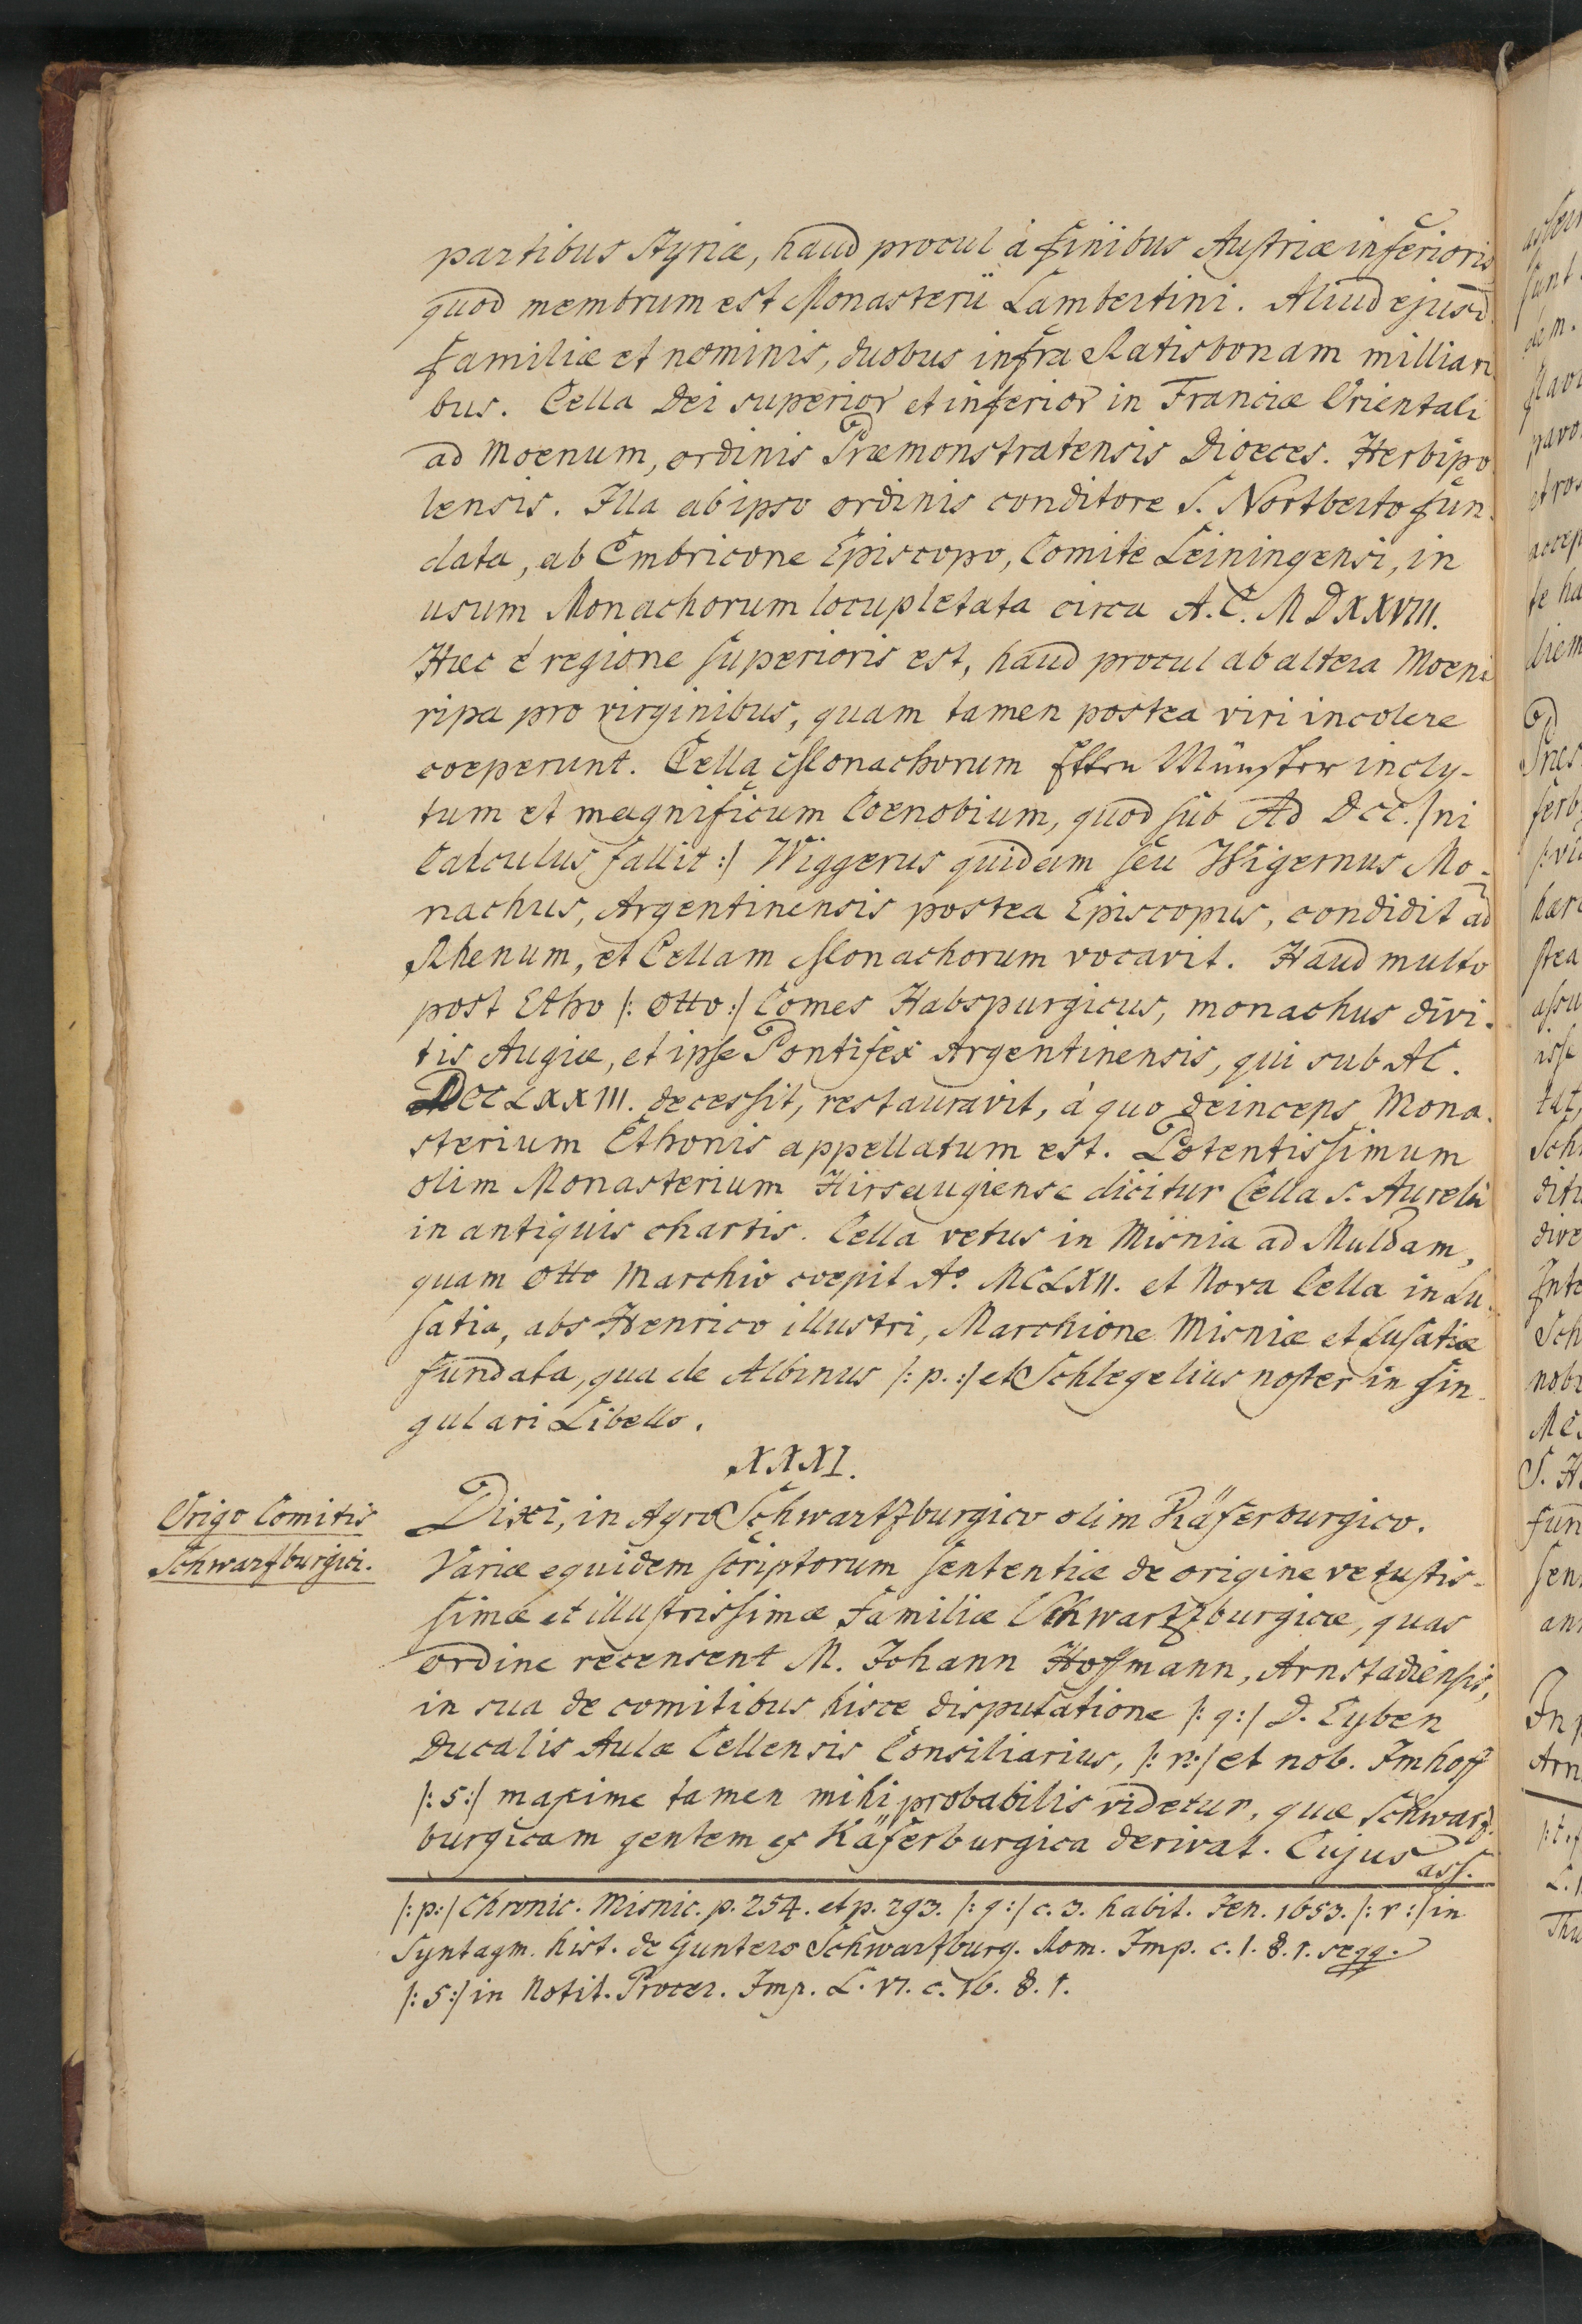 partibus Styriæ, haud procul à finibus Austriæ inferioris
quod membrum est Monasterii Lambertini. Aliud ejusd
familiæ et nominis, duobus infra Ratisbonam milliari
bus. Cella Dei superior et inferior in Franciæ Orientali
ad Moenum, ordinis Præmonstratensis Dioeces. Herbipo
lensis. Illa ab ipso ordinis conditore S. Nortberto fun-
data, ab Embricone Episcopo, Comite Leiningensi, in
usum Monachorum locupletata circa A.C. MDXXVIII.
Hæc è regione superioris est, haud procul ab altera Moeni
ripa pro virginibus, quam tamen postea viri incolere
coeperunt. Cella Monachorum Etten Münster incly-
tum et magnificum Coenobium, quod sub Ad DCC. /ni
Calculus fallit :/ Wiggerus quidam seu Wigernus Mo-
nachus, Argentinensis postea Episcopus, condidit ad
Rhenum, et Cellam Monachorum vocavit. Haud multo
post Etho /: Otto :/ Comes Habspurgicus, monachus divi-
tis Augiæ, et ipse Pontifex Argentinensis, qui sub AC.
DCCLXXIII. decessit, restauravit, à quo deinceps Mona-
sterium Ethonis appellatum est. Potentissimum
olim Monasterium Hirsaugiense dicitur Cella S. Aurelii
in antiquis chartis. Cella vetus in Misnia ad Muldam,
quam Otto Marchio coepit Aº. MCLXII. et Nova Cella in Lu-
satia, abs Henrico illustri, Marchione Misniæ et Lusatiæ
fundata, qua de Albinus /: p. :/ et Schlegelius noster in sin-
gulari Libello.
XXXI.
Origo Comitis
Schwarzburgici.
Dixi, in Agro Schwartzburgico olim Käferburgico.
Variæ equidem scriptorum sententiæ de origine vetustis-
simæ et illustrissimæ familiæ Schwartzburgicæ, quas
ordine recensent M. Johann Hoffmann, Arnstadiensis,
in sua de comitibus hisce disputatione /: q :/ D. Eyben
Ducalis Aulæ Cellensis Consiliarius, /: r :/ et nob. Imhoff
/: s :/ maxime tamen mihi probabilis videtur, quæ Schwarz-
burgicam gentem ex Käferburgica derivat. Cujus
ass.
/: p :/ Chronic. Misnic. p. 254. et p. 293. /: q :/ c. 3. habit. Jen. 1653. /: r :/ in
Syntagm. hist. de Guntero Schwarzburg. Rom. Imp. c. 1. §. 1. seqq.
/: s :/ in Notit. Procer. Imp. L. VI. c. 16. §. 1.